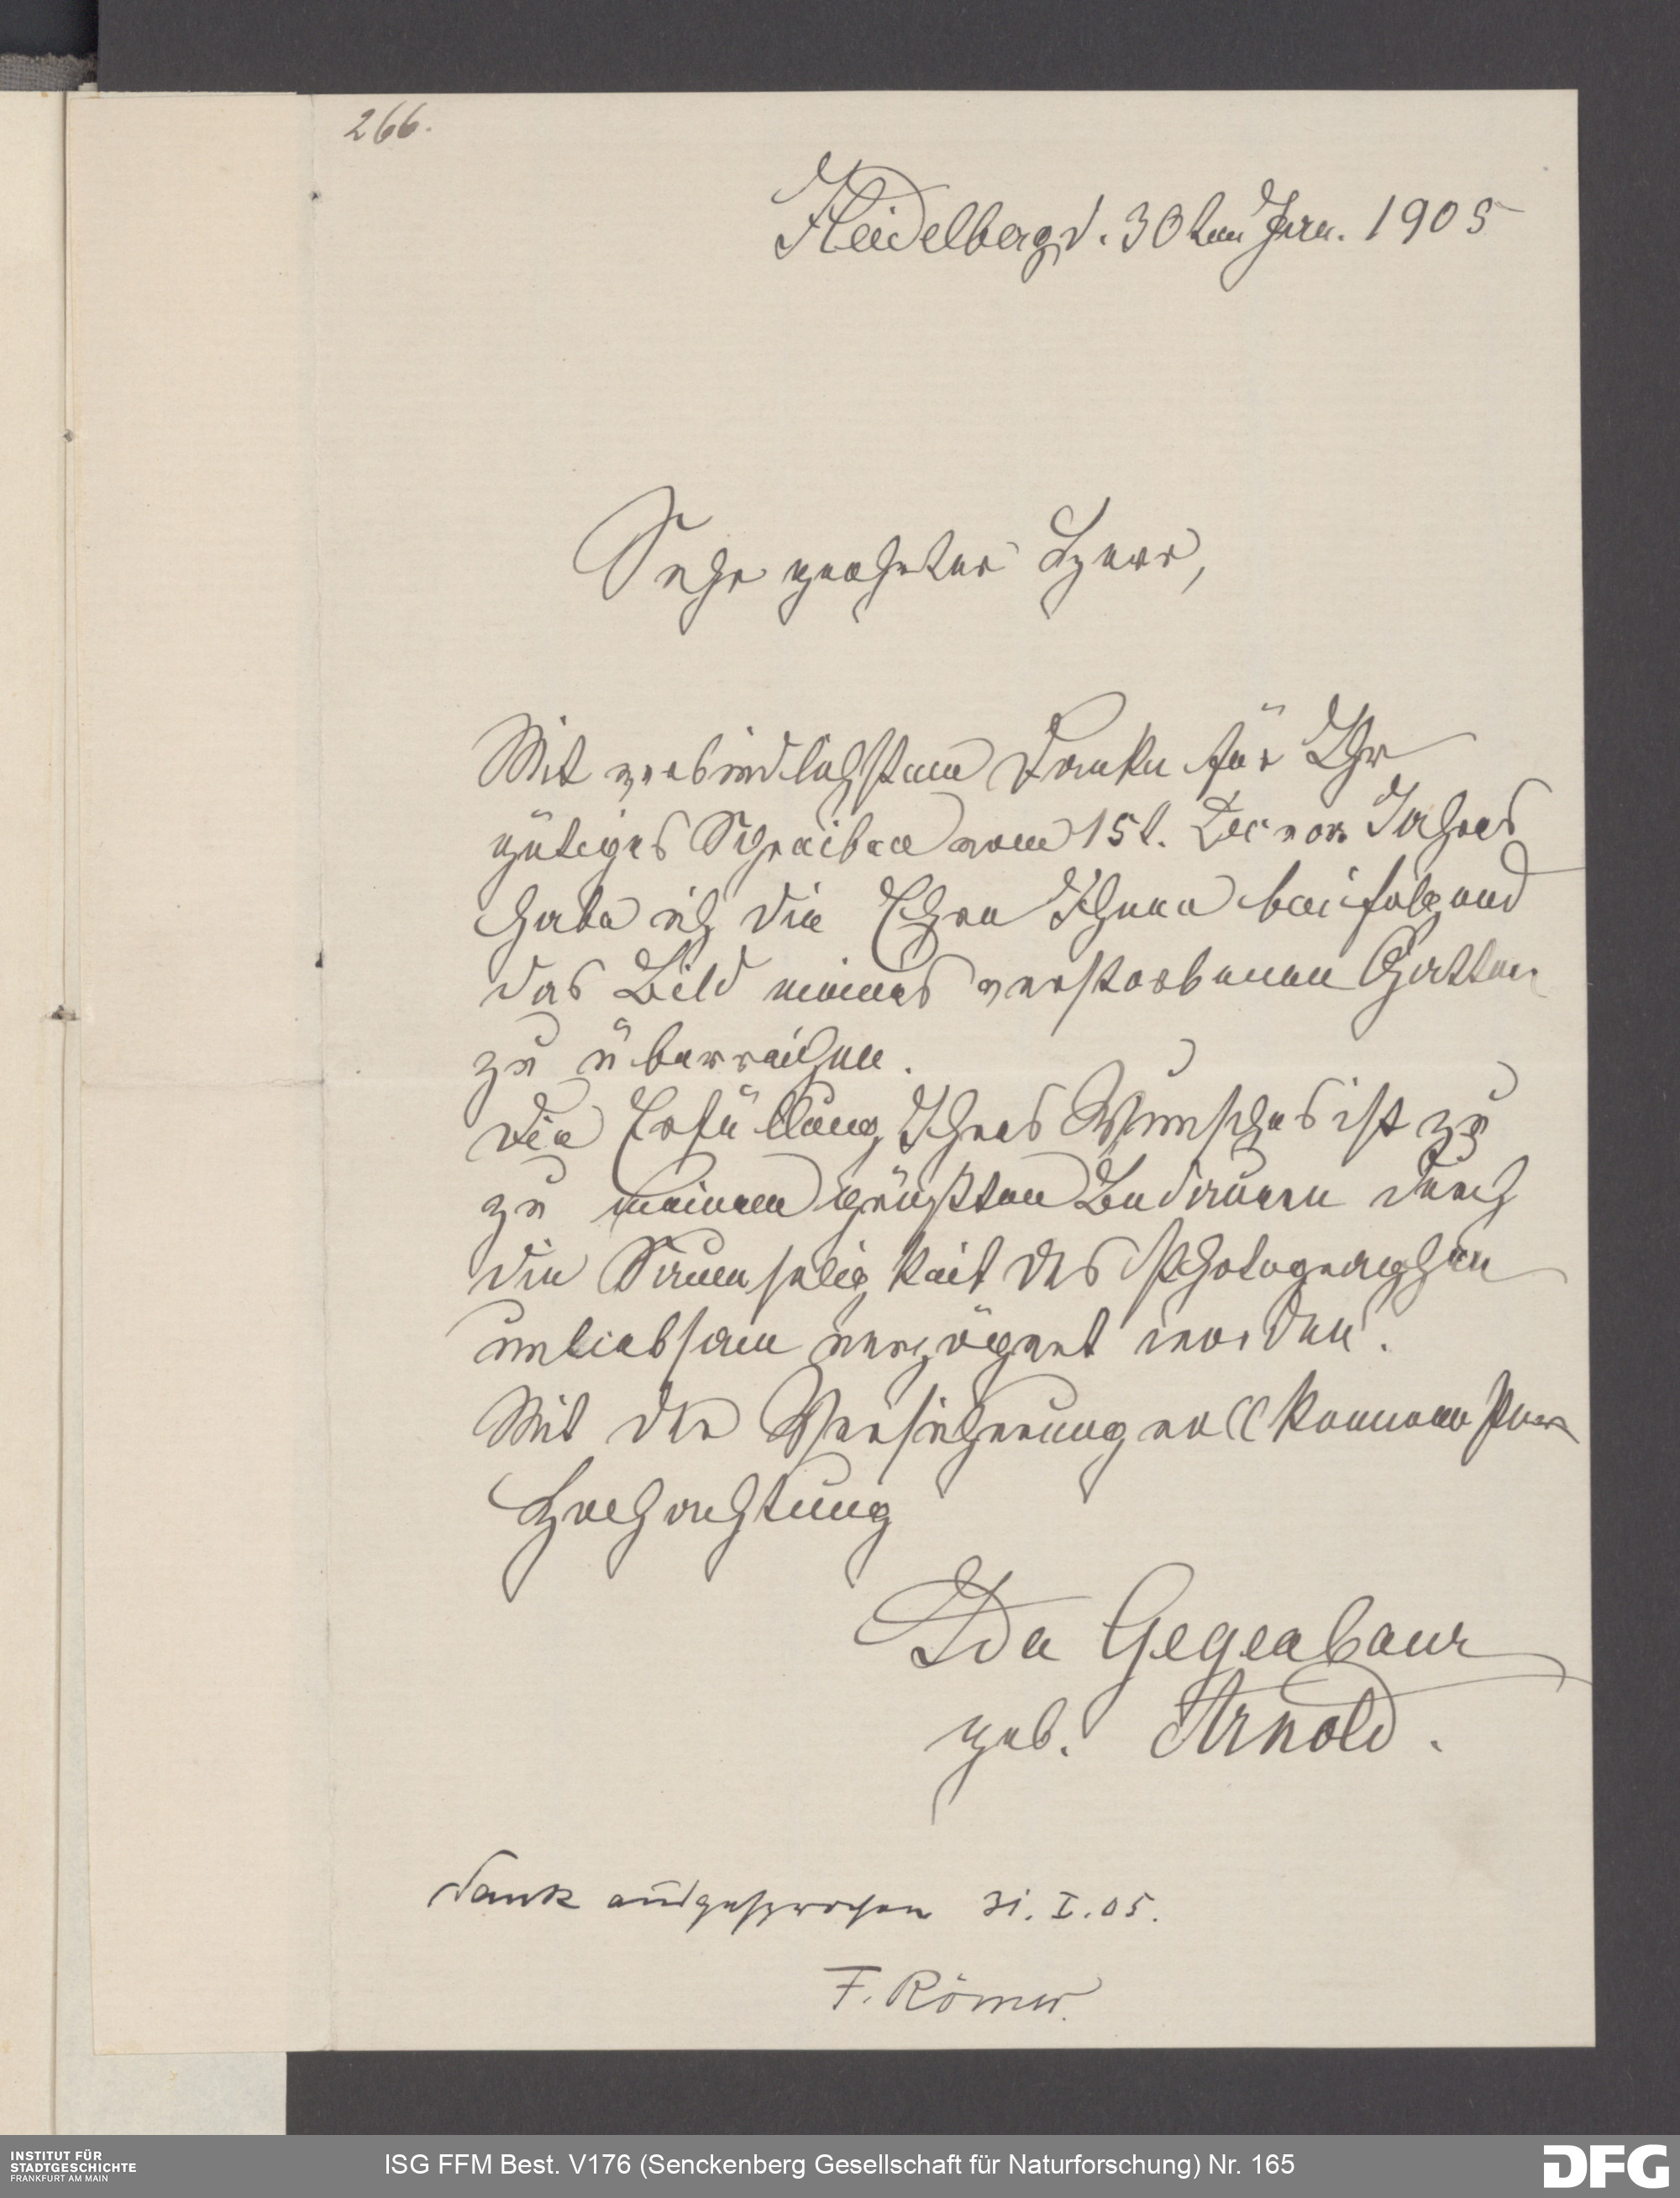 266.
Heidelberg d. 30ten Jan. 1905
Sehr geehrter Herr,
Mit verbindlichstem Danke für Ihr
gütiges Schreiben vom 15t. Dec vor. Jahres
habe ich die Ehre Ihnen beifolgend
das Bild meines verstorbenen Gatten
zu überreichen.
Die Erfüllung Ihres Wunsches ist zu
zu meinem größten Bedauern durch
die Saumseligkeit des Photographen
unliebsam verzögert worden.
Mit der Versicherung vollkommenster
Hochachtung
Ida Gegenbaur
geb. Arnold.
Dank ausgesprochen 31. I. 05.
F. Römer.
INSTITUT FÜR
STADTGESCHICHTE
FRANKFURT AM MAIN
ISG FFM Best. V176 (Senckenberg Gesellschaft für Naturforschung) Nr. 165
DFG